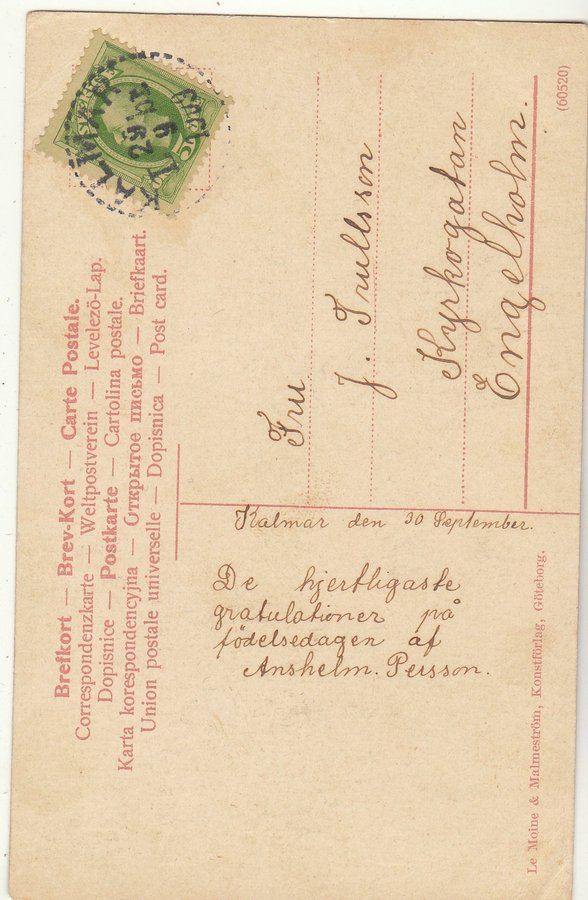 Brefkort — Brev-Kort — Carte Postale.
Correspondenzkarte — Weltpostverein — Levelező-Lap.
Dopisnice — Postkarte — Cartolina postale.
Karta korespondencyjna — Открытое письмо — Briefkaart.
Union postale universelle — Dopisnica — Post card.
KALMAR
29
9
(60520)
Fru
J. Trullsson
Kyrkogatan
Engelholm.
Kalmar den 30 September.
De hjertligaste
gratulationer på
födelsedagen af
Anshelm. Persson.
Le Moine & Malmeström, Konstförlag, Göteborg.